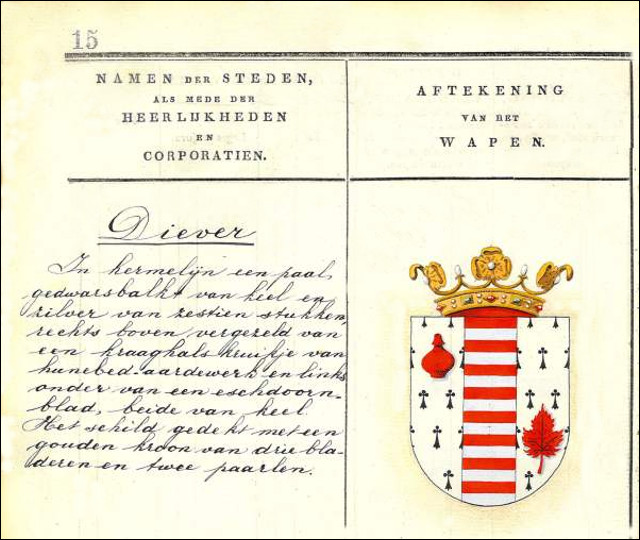 15
NAMEN DER STEDEN,
ALS MEDE DER
HEERLIJKHEDEN
EN
CORPORATIEN.
AFTEKENING
VAN HET
WAPEN.
Diever
In hermelijn een paal,
gedwarsbalkt van keel en
zilver van zestien stukken,
rechts boven vergezeld van
een kraaghals kruikje van
hunebed-aardewerk en links
onder van een eschdoorn-
blad, beide van keel.
Het schild gedekt met een
gouden kroon van drie bla-
deren en twee paarlen.